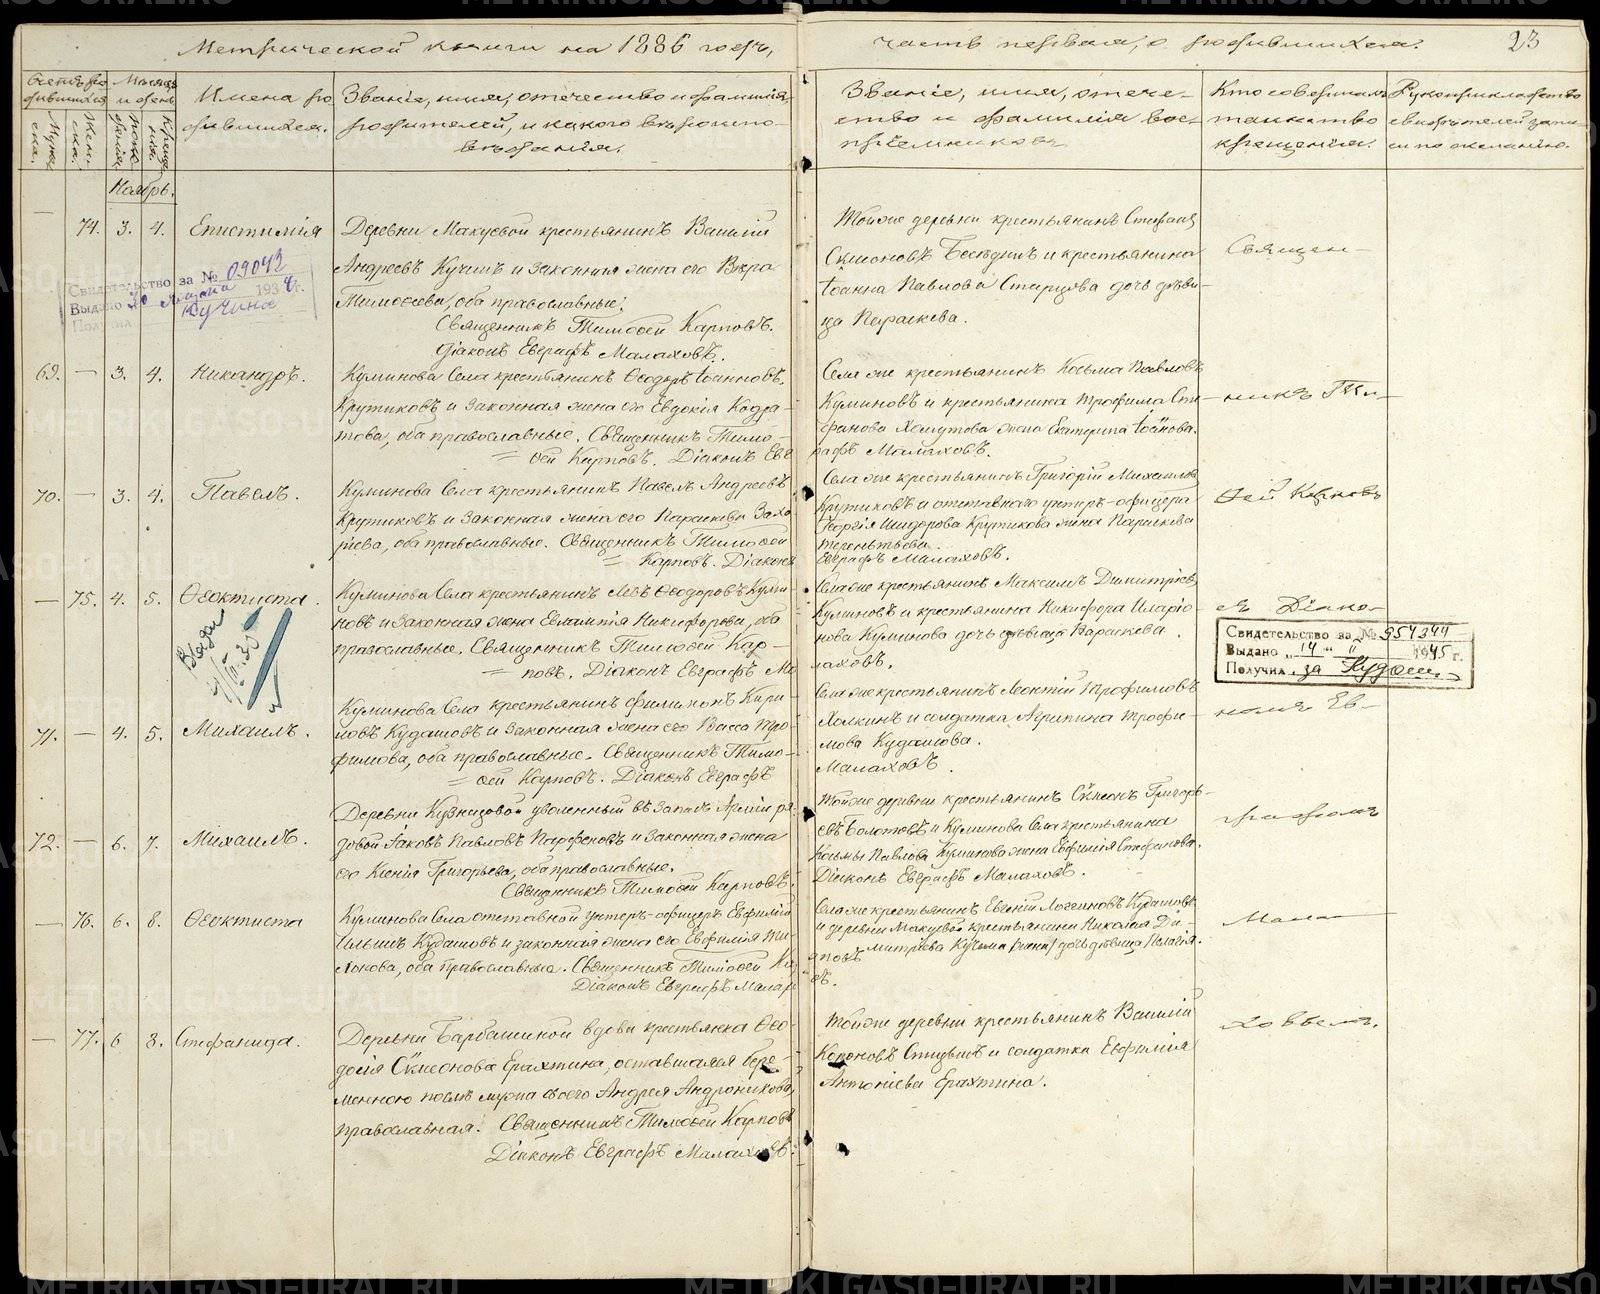 Метрической книги на 1886 годъ,
часть первая, о родившихся.
23
Счетъ родившихся
Мужеска.
Женска.
Мѣсяцъ и день
рожденія.
крещенія.
Имена родившихся.
Званіе, имя, отечество и фамилія
родителей, и какого вѣроисповѣданія.
Званіе, имя, отечество и фамилія воспріемниковъ
Кто совершалъ
таинство
крещенія.
Рукоприкладство
свидѣтелей записи по желанію.
Ноябрь.
74. 3. 4. Епистимія
Деревни Макуевой крестьянинъ Василій
Андреевъ Кучинъ и законная жена его Вѣра
Тимоѳеева, оба православные.
Священникъ Тимоѳей Карповъ.
Діаконъ Евграфъ Малаховъ.
Тойже деревни крестьянинъ Стефанъ
Симеоновъ и крестьянина
Іоанна Павлова Старцева дочь дѣвица Параскева.
Свидетельство за № 09042
Выдано 193 г.
Получил Кучина
69. — 3. 4. Никандръ.
Куминова Села крестьянинъ Ѳеодоръ Іоанновъ
Крутиковъ и законная жена его Евдокія Кодратова, оба православные. Священникъ Тимоѳей Карповъ. Діаконъ Евграфъ Малаховъ.
Села же крестьянинъ Косьма Павловъ
Куминовъ и крестьянина Трофима Стефанова Хомутова жена Екатерина Іоаннова.
70. — 3. 4. Павелъ.
Куминова Села крестьянинъ Павелъ Андреевъ
Крутиковъ и законная жена его Параскева Захаріева, оба православные. Священникъ Тимоѳей
Карповъ. Діаконъ
Села же крестьянинъ Григорій Михаиловъ
Крутиковъ и отставнаго унтеръ-офицера
Георгія Исидорова Крутикова жена Параскева
Терентьева.
Евграфъ Малаховъ.
— 75. 4. 5. Ѳеоктиста.
Куминова Села крестьянинъ Левъ Ѳеодоровъ Куминовъ и законная жена Евлампія Никифорова, оба
православные. Священникъ Тимоѳей Карповъ. Діаконъ Евграфъ Малаховъ.
Села же крестьянинъ Максимъ Димитріевъ
Куминовъ и крестьянина Никифора Иларіонова Куминова дочь дѣвица Параскева.
Выдан
71. — 4. 5. Михаилъ.
Куминова Села крестьянинъ Филимонъ Кириловъ Кудашовъ и законная жена его Васса Трофимова, оба православные. Священникъ Тимоѳей Карповъ. Діаконъ Евграфъ
Села же крестьянинъ Леонтій Трофимовъ
Холкинъ и солдатка Агрипина Трофимова Кудашова.
Малаховъ.
Свидетельство за № 954344
Выдано „14" „11" 1945 г.
Получил за Кудаш.
72. — 6. 7. Михаилъ.
Деревни Кузнецовой уволенный въ запасъ Арміи рядовой Іаковъ Павловъ Парфеновъ и законная жена
его Ксенія Григорьева, оба православные.
Священникъ Тимоѳей Карповъ.
Тойже деревни крестьянинъ Сѵмеонъ Григорьевъ Болотовъ и Куминова Села крестьянина
Косьмы Павлова Куминова жена Евфимія Стефанова.
Діаконъ Евграфъ Малаховъ.
— 76. 6. 8. Ѳеоктиста
Куминова Села отставной унтеръ-офицеръ Евфимій
Ильинъ Кудашовъ и законная жена его Евфимія
оба православные. Священникъ Тимоѳей Карповъ
Діаконъ Евграфъ Малаховъ.
Села же крестьянинъ Евгеній Логгиновъ Кудашовъ
и деревни Макуевой крестьянина Николая Димитріева Кучина дочь дѣвица Пелагія.
— 77. 6 8. Стефанида.
Деревни Барбашиной вдова крестьянка Ѳеодосія Сѵмеонова Ерахтина, оставшаяся беременною послѣ мужа своего Андрея Андроникова,
православная. Священникъ Тимоѳей Карповъ
Діаконъ Евграфъ Малаховъ.
Тойже деревни крестьянинъ Василій
и солдатка Евфимія
Антоніева Ерахтина.
Священникъ Тимоѳей Карповъ
съ Діакономъ Евграфомъ
Малаховымъ.
METRIKI.GASO-URAL.RU